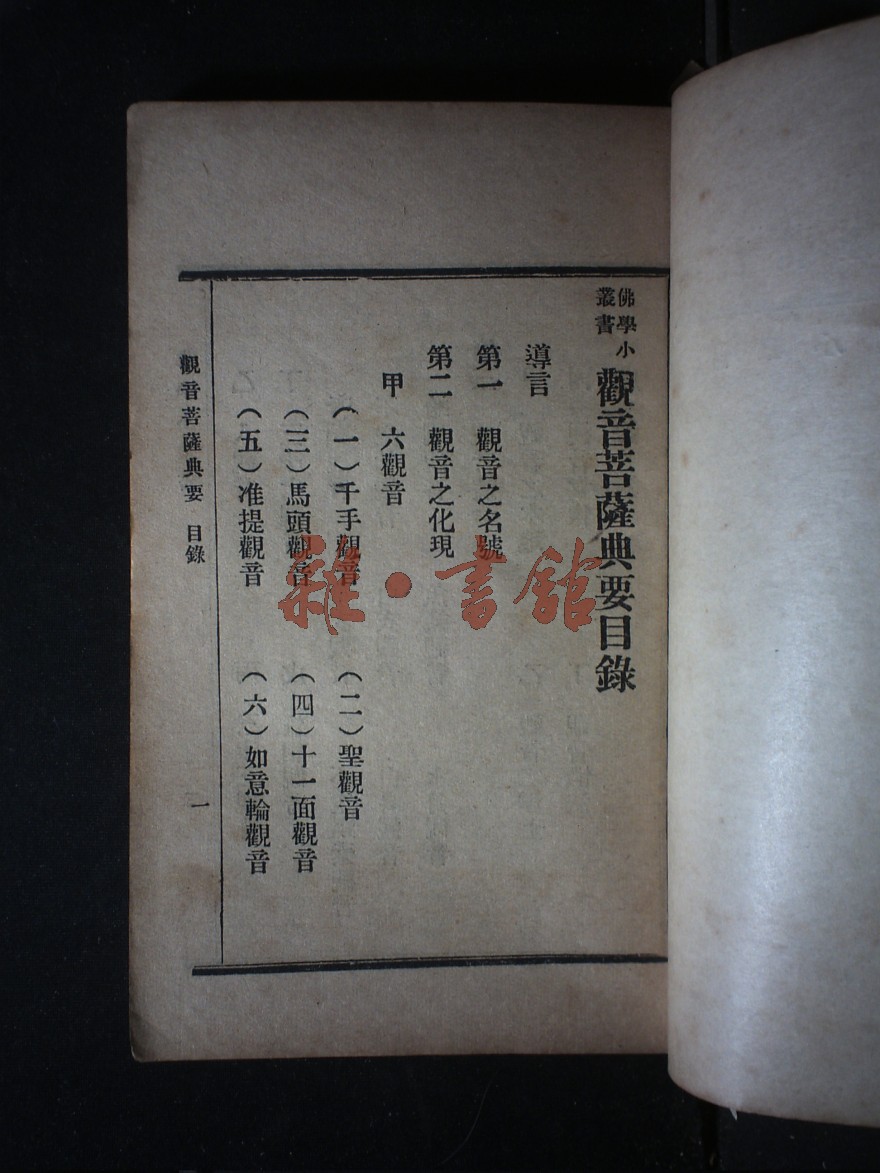 佛學小叢書 觀音菩薩典要目錄
導言
第一 觀音之名號
第二 觀音之化現
甲 六觀音
(一)千手觀音 (二)聖觀音
(三)馬頭觀音 (四)十一面觀音
(五)准提觀音 (六)如意輪觀音
觀音菩薩典要 目錄 一
雜·書館